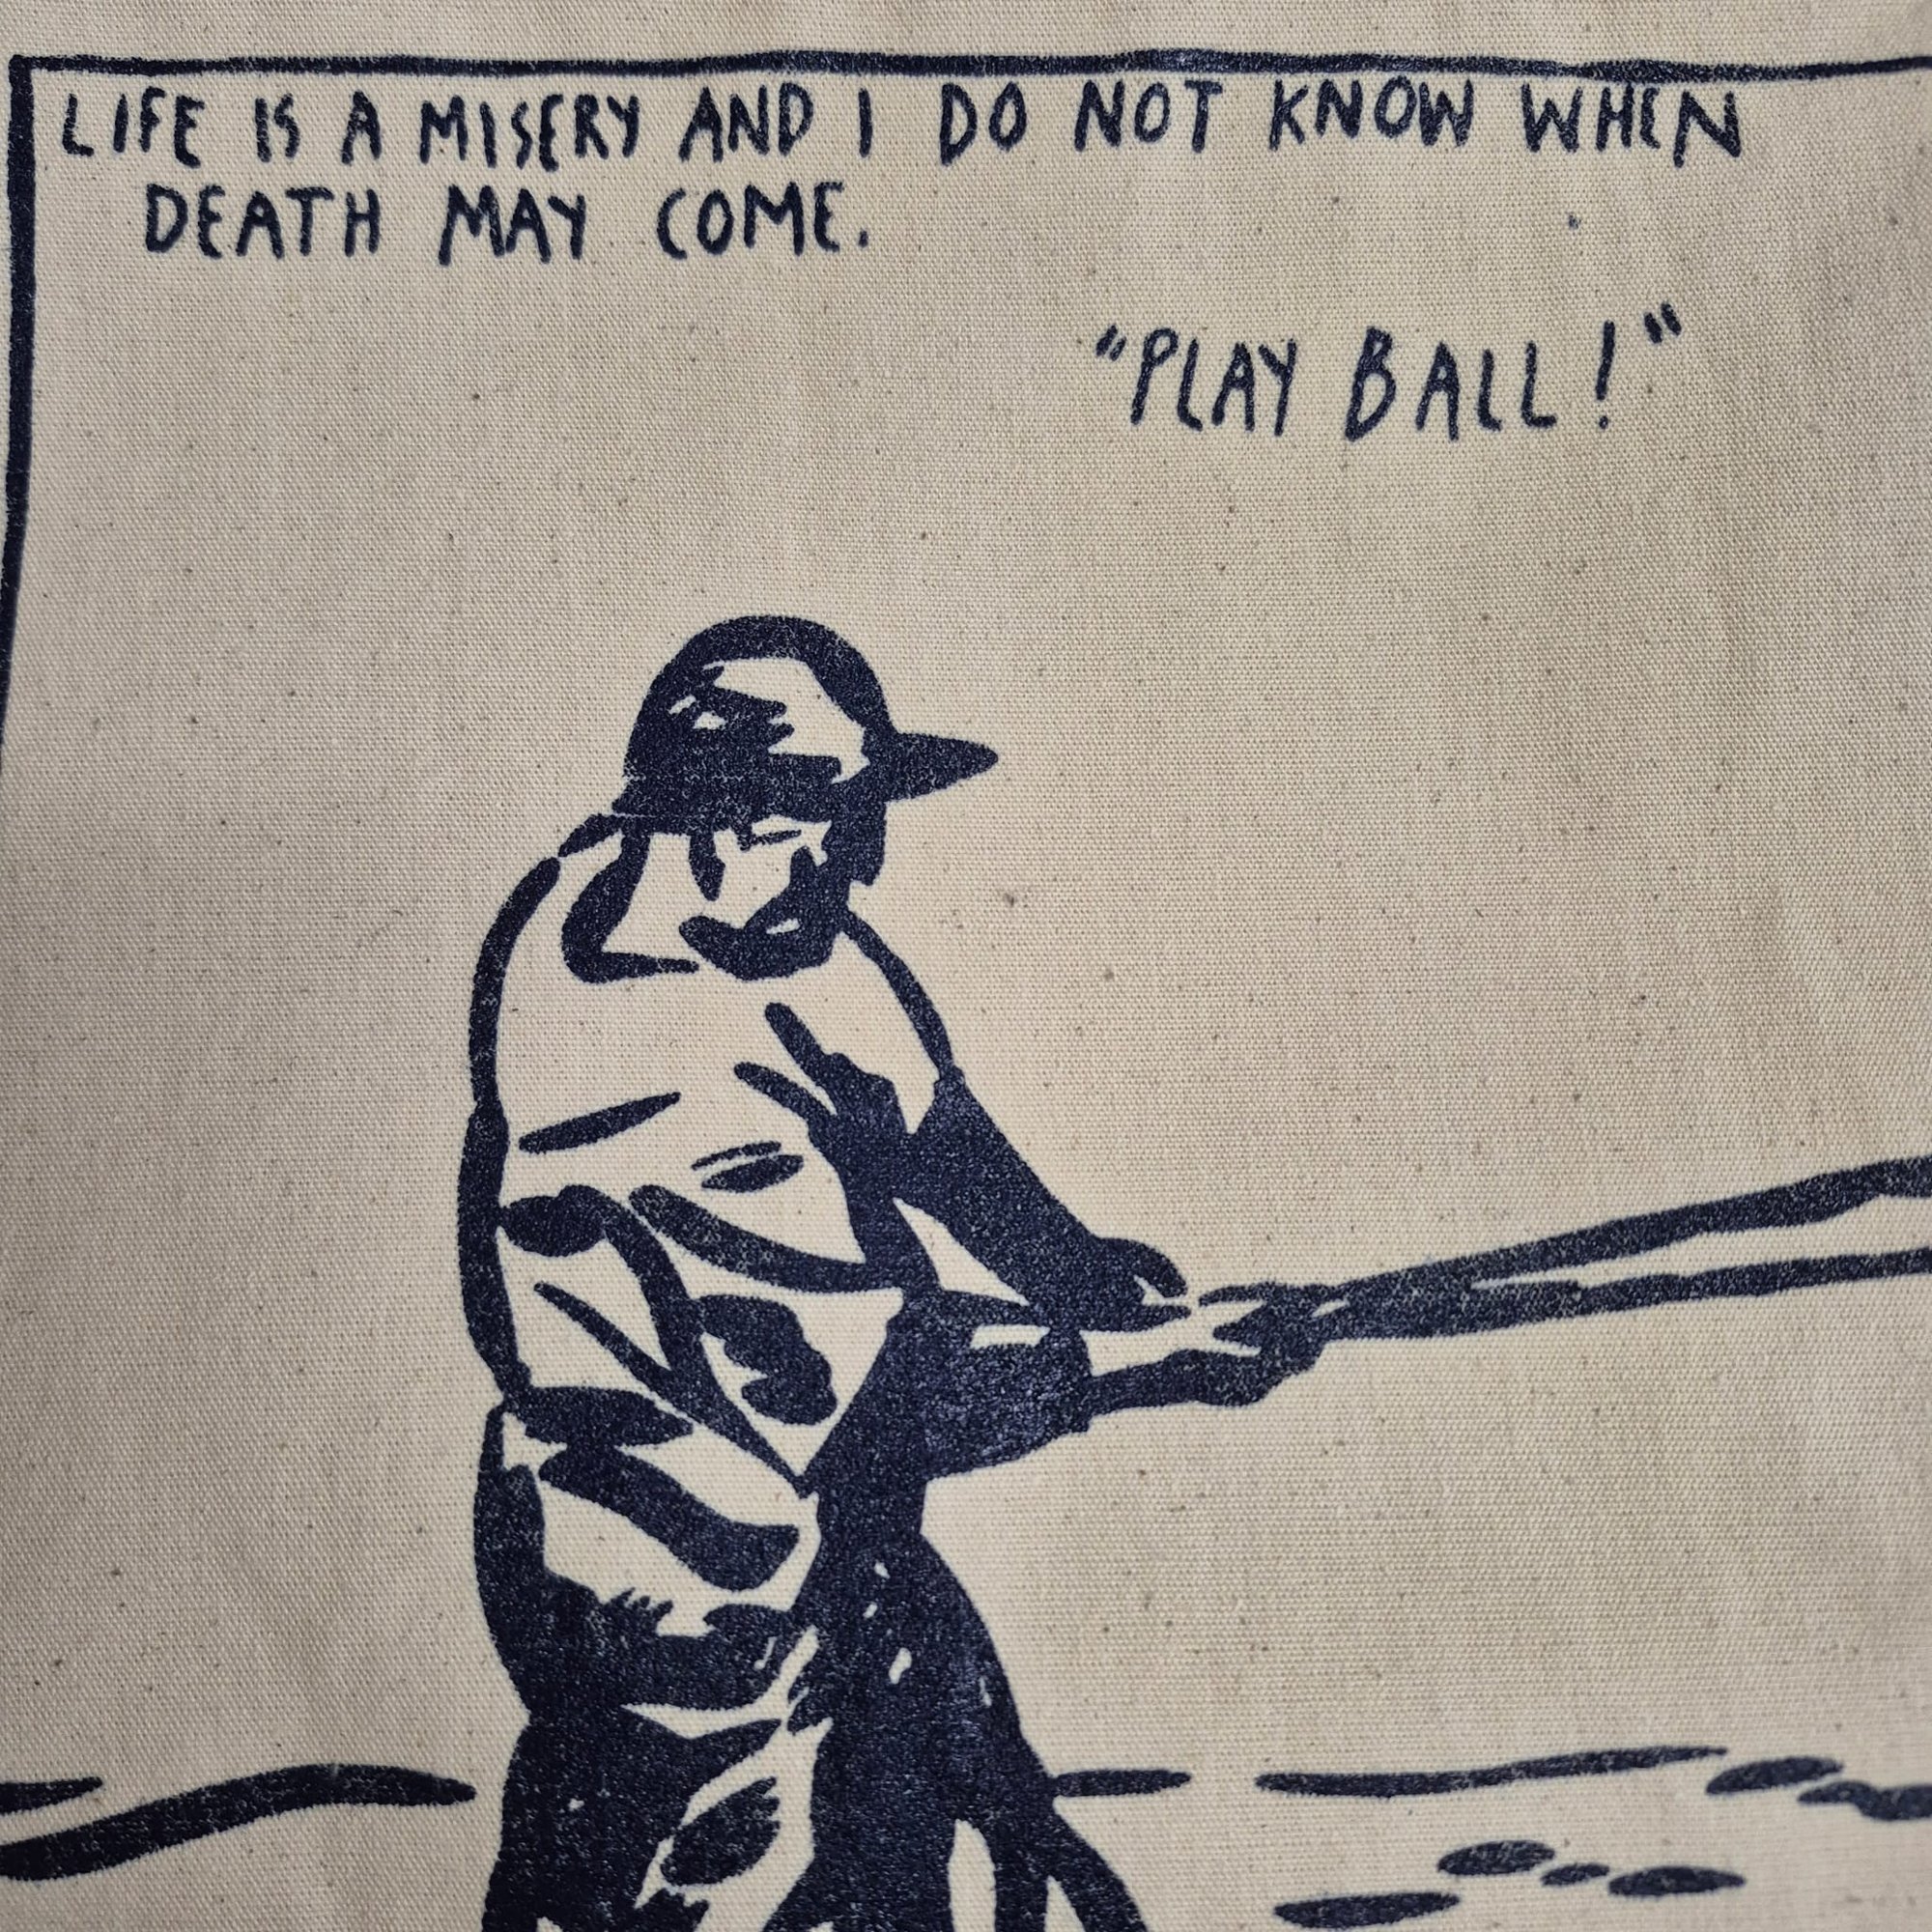 LIFE IS A MISERY AND I DO NOT KNOW WHEN
DEATH MAY COME.
"PLAY BALL!"